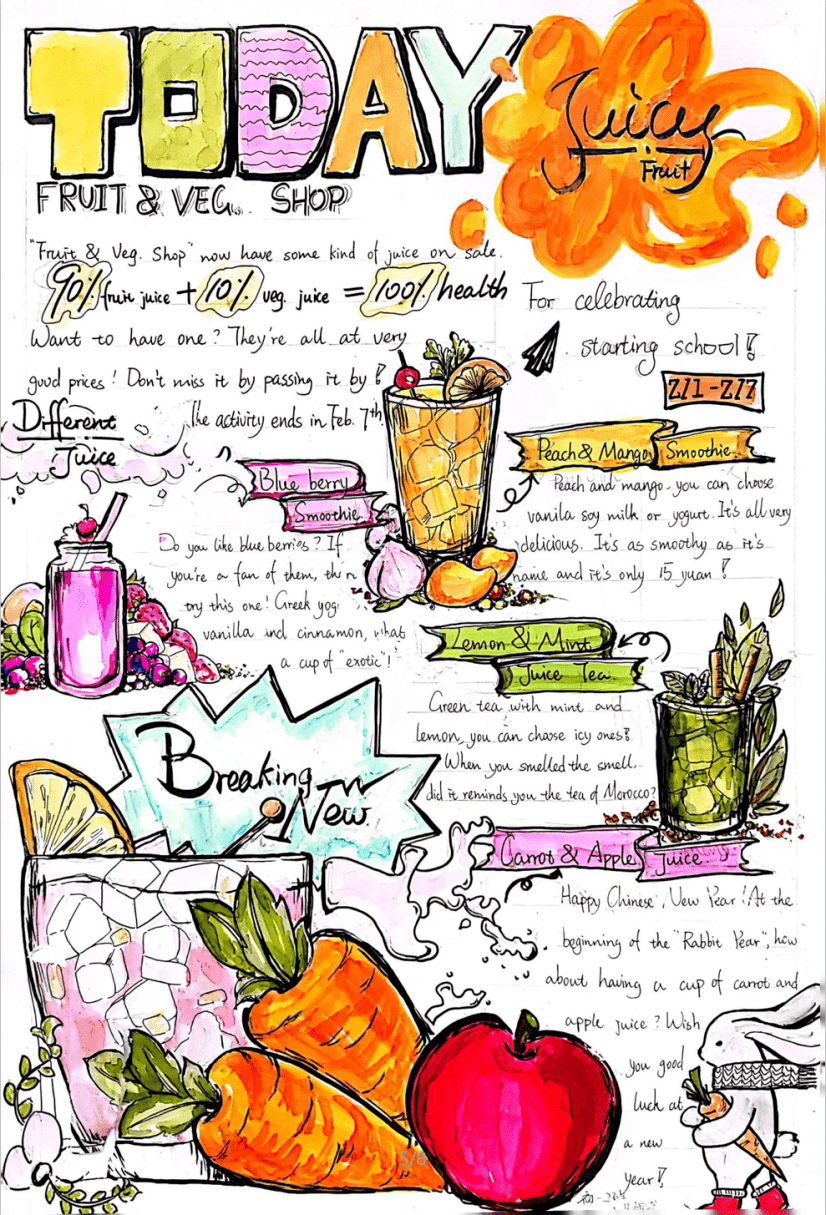 TODAY
Juicy
Fruit
FRUIT & VEG. SHOP
"Fruit & Veg. Shop" now have some kind of juice on sale.
90% fruit juice + 10% veg. juice = 100% health
Want to have one? They're all at very
good prices! Don't miss it by passing it by!
The activity ends in Feb. 7th.
For celebrating
starting school!
2/1-2/7
Different
Juice
Blue berry
Smoothie
Do you like blue berries? If
you're a fan of them, then
try this one! Greek yog
vanilla and cinnamon, what
a cup of "exotic"!
Peach & Mango
Smoothie
Peach and mango-you can choose
vanilla soy milk or yogurt. It's all very
delicious. It's as smoothy as it's
name and it's only 15 yuan!
Lemon & Mint
Juice Tea
Green tea with mint and
lemon, you can choose icy ones!
When you smelled the smell,
did it reminds you the tea of Morocco?
Breaking
New
Carrot & Apple
Juice
Happy Chinese New Year! At the
beginning of the "Rabbit Year", how
about having a cup of carrot and
apple juice? Wish
you good
luck at
a new
year!
5/8